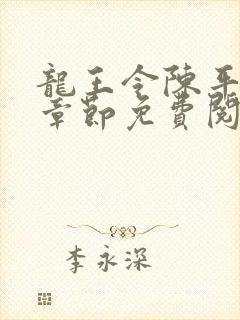 龍王令陳平
章節免費閱
李永深